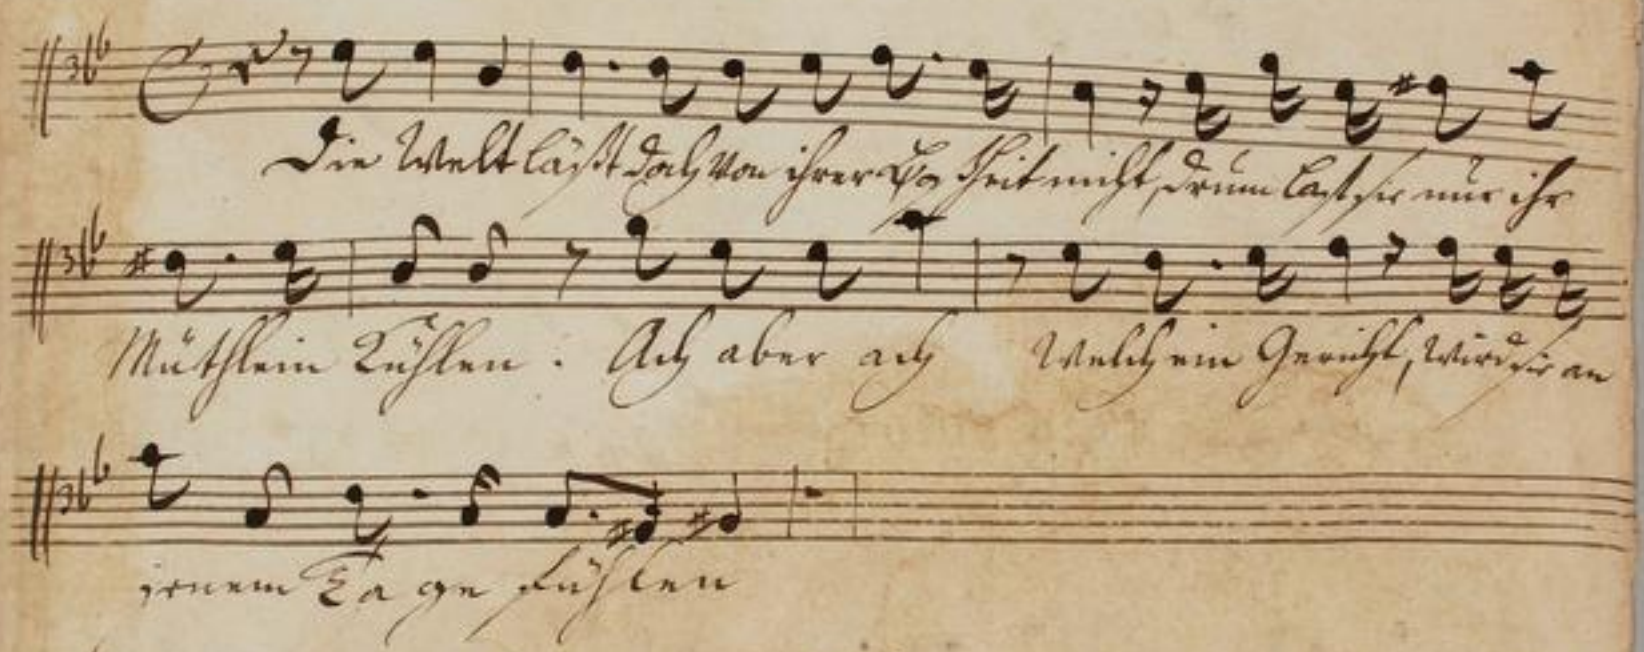 Die Welt läßt doch von ihrer Boßheit nicht, drum laßt sie nur ihr
Müthlein Kühlen. Ach aber ach Welch ein Gericht, wird sie an
jenem Tage fühlen